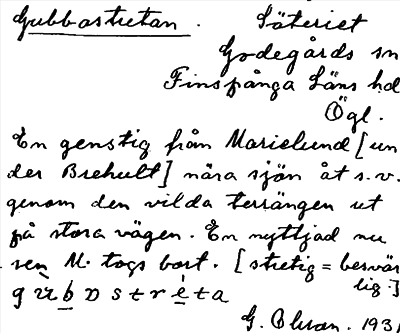 Gubbastretan. Säteriet
Godegårds sn
Finspånga Läns hd
Ögl.
En genstig från Marielund [un
der Brehult] nära sjön åt s.v.
genom den vilda terrängen ut
på stora vägen. En nyttjad nu
sen M. togs bort. [stretig = besvär
lig.]
G. Olsson. 193